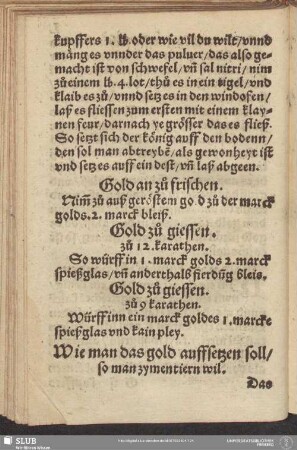 kupffers 1. lb. oder wie vil du wilt/ vnnd
mãng es vnnder das puluer/ das also ge-
macht ist von schwefel/ vñ sal nitri/ nim
zů einem lb. 4. lot/ thů es in ein tigel/ vnd
klaib es zů/ vnnd setz es in den windofen/
laß es fliessen zum ersten mit einem klay-
nen feur/ darnach ye grösser das es fließ.
So setzt sich der könig auff den bodenn/
den sol man abtreybẽ/ als gewonheyt ist
vnd setz es auff ein test/ vñ laß abgeen.
Gold an zů frischen.
Nim̃ zů auß geröstem gold zů der marck
golds. 2. marck bleiß.
Gold zů giessen.
zů 12. karathen.
So würff in 1. marck golds 2. marck
spießglas/ vñ anderthalb fierdũg bleis.
Gold zů giessen.
zů 9 karathen.
Würff inn ein marck goldes 1. marcke
spießglas vnd kain pley.
Wie man das gold auffsetzen soll/
so man zymentiern wil.
Das
SLUB
Wir führen Wissen.